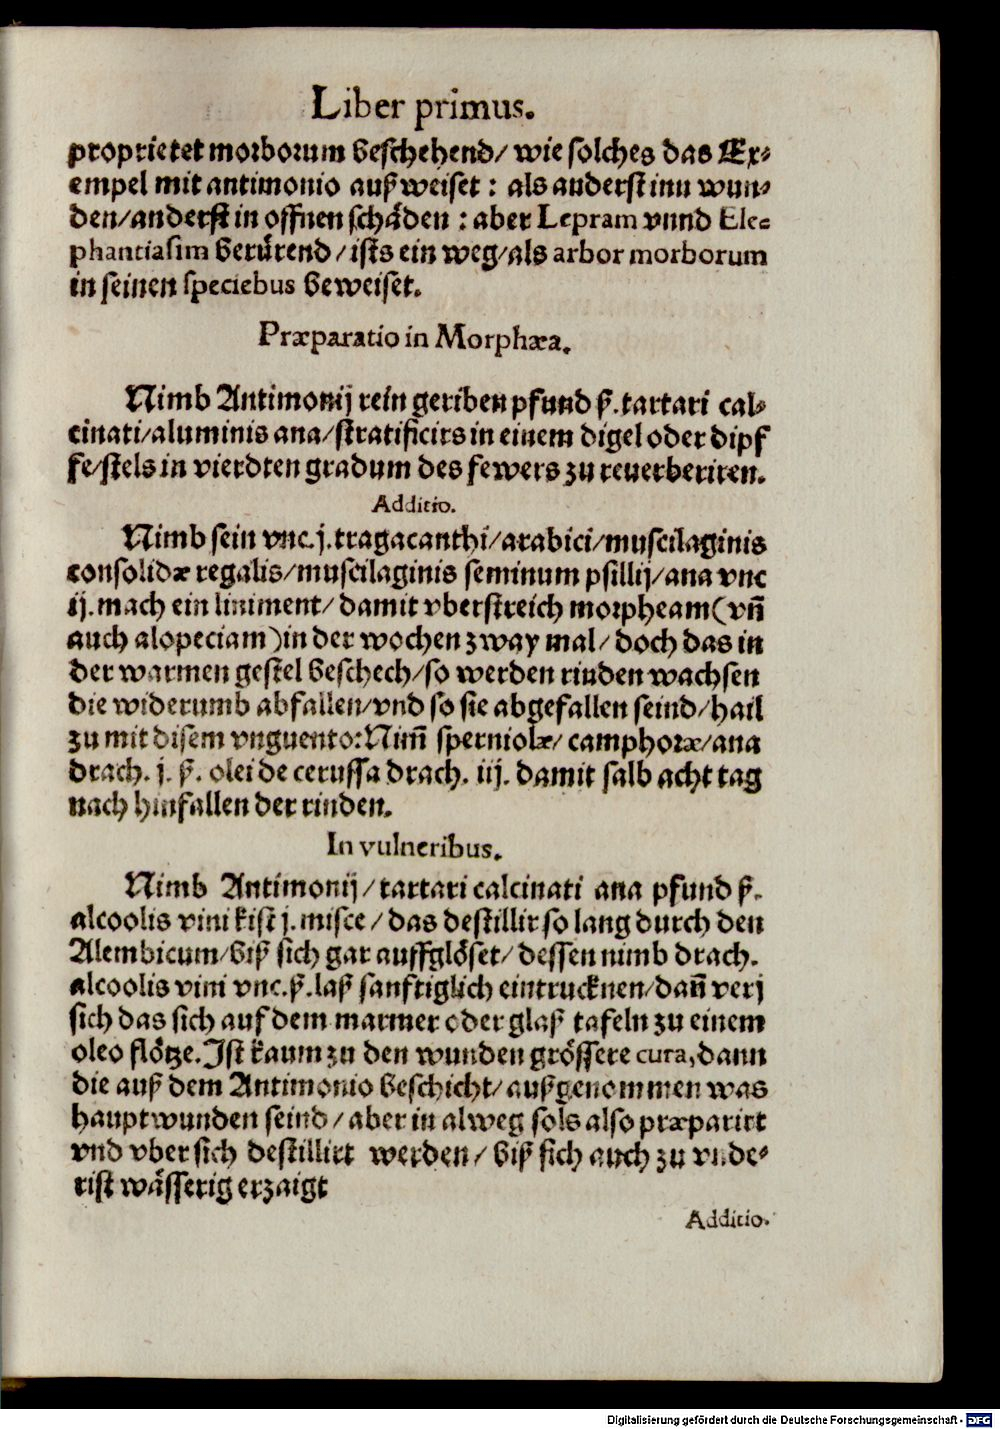 Liber primus.
proprietet morborum beschehend/ wie solches das Ex⸗
empel mit antimonio außweiset : als anderst inn wun⸗
den/anderst in offnen schäden : aber Lepram vnnd Ele⸗
phantiasim berürend/ists ein weg/als arbor morborum
in seinen speciebus beweiset.
Præparatio in Morphæa.
Nimb Antimonij rein geriben pfund ß. tartari cal⸗
cinati/aluminis ana/stratificirs in einem digel oder dipf
fe/stels in vierdten gradum des fewers zu reuerberiren.
Additio.
Nimb sein vnc. j. tragacanthi/arabici/muscilaginis
consolidæ regalis/muscilaginis seminum psillij/ana vnc
ij. mach ein liniment/ damit vberstreich morpheam(vñ
auch alopeciam)in der wochen zway mal/ doch das in
der warmen gestel beschech/so werden rinden wachsen
die widerumb abfallen/vnd so sie abgefallen seind/hail
zu mit disem vnguento: Nim̃ sperniolæ/ camphoræ/ana
drach. j. ß. olei de cerussa drach. iij. damit salb acht tag
nach hinfallen der rinden.
In vulneribus.
Nimb Antimonij/tartari calcinati ana pfund ß.
alcoolis vini kist j. misce/ das destillir so lang durch den
Alembicum/biß sich gar auffglöset/ dessen nimb drach.
alcoolis vini vnc. ß. laß sanftiglich eintrucknen/dañ verj
sich das sich auf dem marmer oder glaß tafeln zu einem
oleo flötze. Ist kaum zu den wunden grössere cura, dann
die auß dem Antimonio beschicht/außgenommen was
hauptwunden seind/ aber in alweg sols also præparirt
vnd vber sich destillirt werden/ biß sich auch zu vnde⸗
rist wässerig erzaigt
Additio.
Digitalisierung gefördert durch die Deutsche Forschungsgemeinschaft - DFG